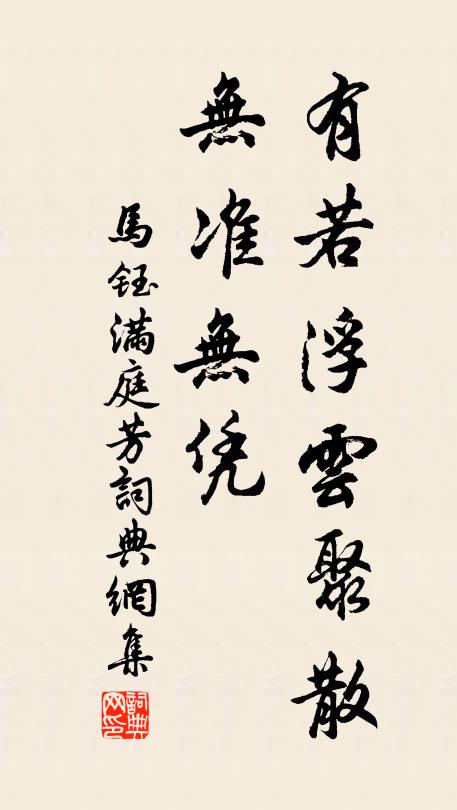 有若浮雲聚散
無准無凭
馬鈺滿庭芳詞典網集
詞典网印